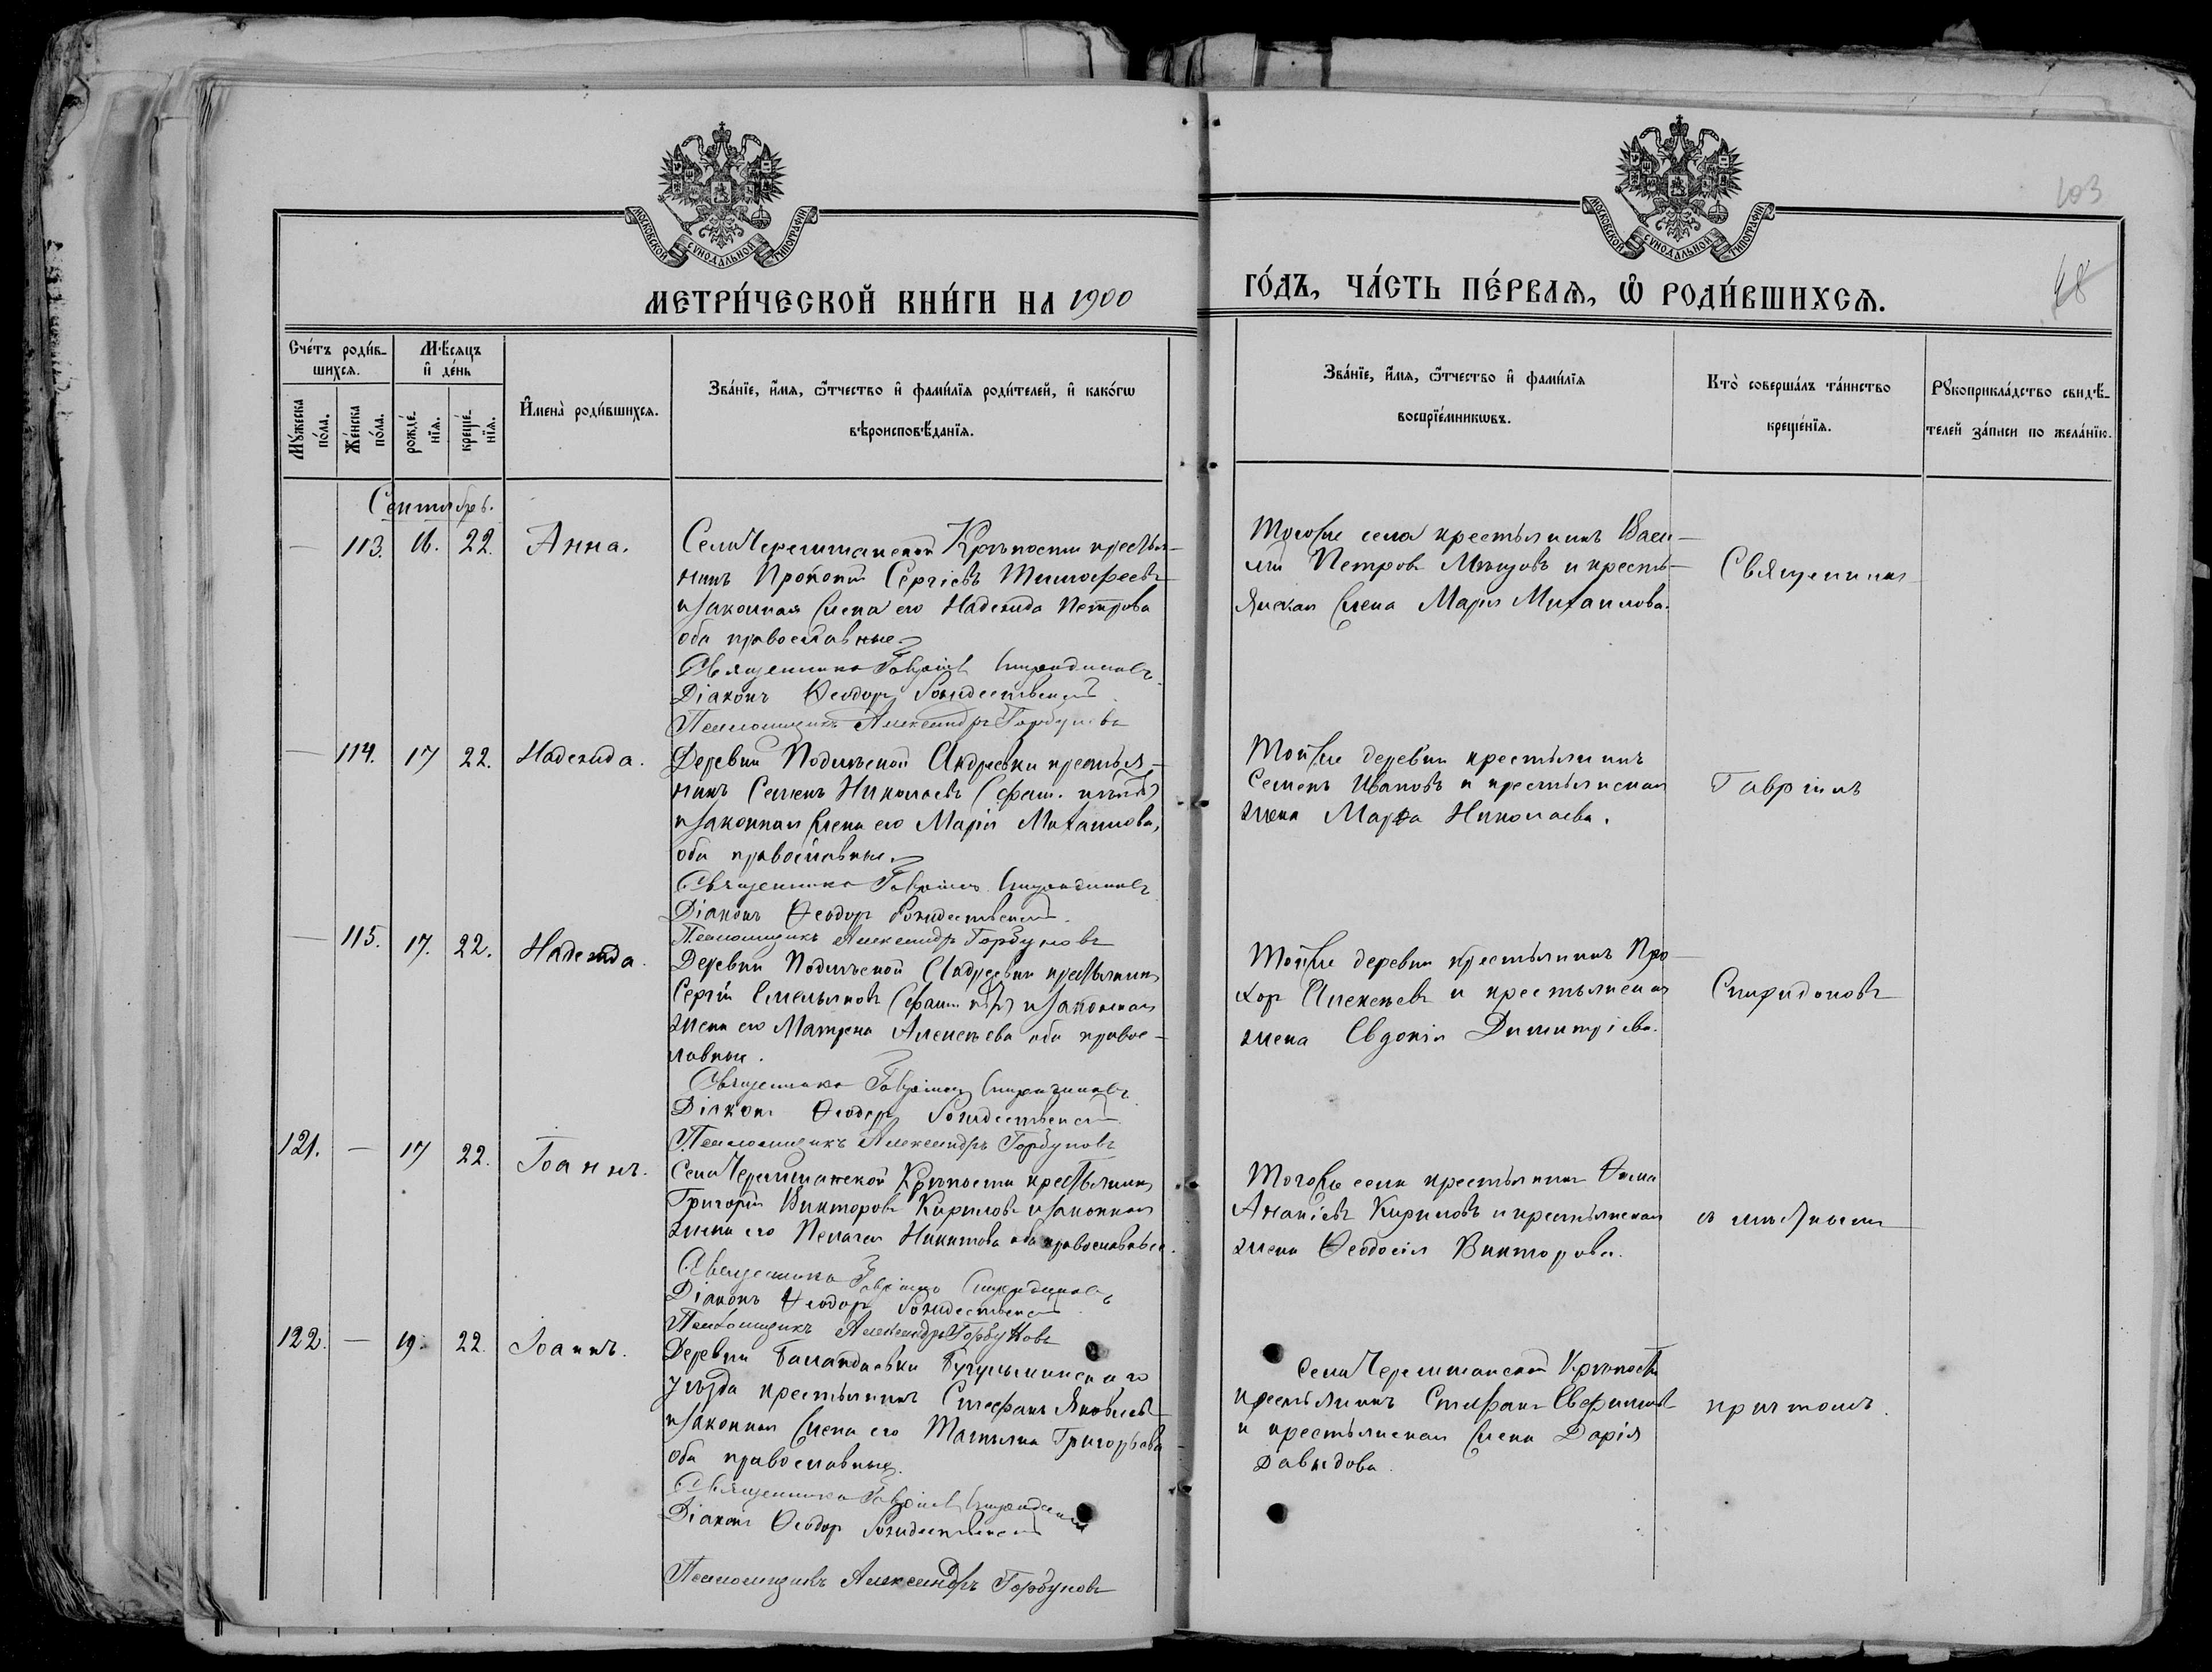 103
МОСКОВСКОЙ СѴНОДАЛЬНОЙ ТИПОГРАФІИ
МОСКОВСКОЙ СѴНОДАЛЬНОЙ ТИПОГРАФІИ
МЕТРИ́ЧЕСКОЙ КНИ́ГИ НА 1900
ГО́ДЪ, ЧА́СТЬ ПЕ́РВАѦ, Ѽ РОДИ́ВШИХСѦ.
Сче́тъ роди́в-
шихсѧ.
Мꙋ́жеска
по́ла.
Же́нска
по́ла.
Мѣ́сяцъ
и҆ де́нь
рожде́-
нїѧ.
креще́-
нїѧ.
И҆мена̀ роди́вшихсѧ.
Зва́нїе, и҆́мѧ, ѻ҆́тчество и҆ фами́лїѧ роди́телей, и҆ како́гѡ
вѣроисповѣ́данїѧ.
Зва́нїе, и҆́мѧ, ѻ҆́тчество и҆ фами́лїѧ
воспрїе́мникѡвъ.
Кто̀ соверша́лъ та́инство
креще́нїѧ.
Рꙋкоприкла́дство свидѣ́-
телей за́писи по жела́нїю.
Сентябрь.
— 113. 16. 22. Анна.
Села Черемшанской Крѣпости крестья-
нинъ Прокопій Сергіевъ Тимофеевъ
и законная жена его Надежда Петрова
оба православные
Священникъ Гавріилъ Спиридоновъ
Діаконъ Ѳеодоръ Рождественскій
Псаломщикъ Александръ Горбуновъ
Того же села крестьянинъ Васи-
лій Петровъ и кресть-
янская жена Марія Михаилова.
Священникъ
— 114. 17 22. Надежда.
Деревни Подлѣсной Андреевки крестья-
нинъ Семенъ Николаевъ (фам. нѣтъ)
и законная жена его Марія Михаилова,
оба православные
Священникъ Гавріилъ Спиридоновъ
Діаконъ Ѳеодоръ Рождественскій.
Псаломщикъ Александръ Горбуновъ
Той же деревни крестьянинъ
Семенъ Ивановъ и крестьянская
жена Марѳа Николаева.
Гавріилъ
— 115. 17. 22. Надежда.
Деревни Подлѣсной Андреевки крестьянинъ
Сергій Емельяновъ (фам. нѣтъ) и законная
жена его Матрена Алексѣева оба правос-
лавные.
Священникъ Гавріилъ Спиридоновъ
Діаконъ Ѳеодоръ Рождественскій
Псаломщикъ Александръ Горбуновъ
Той же деревни крестьянинъ Про-
хор Алексѣевъ и крестьянская
жена Евдокія Димитріева.
Спиридоновъ
121. — 17 22. Іоаннъ.
Села Черемшанской Крѣпости крестьянинъ
Григорій Викторовъ Кириловъ и законная
жена его Пелагея Никитова оба православные.
Священникъ Гавріилъ Спиридоновъ
Діаконъ Ѳеодоръ Рождественскій
Псаломщикъ Александръ Горбуновъ
Того же села крестьянинъ Ѳома
Ананіевъ Кириловъ и крестьянская
жена Ѳеодосія Викторова.
съ мѣстнымъ
122. — 19. 22. Іоаннъ.
Деревни Баландаевки Бугульминскаго
уѣзда крестьянинъ Стефанъ Яковлевъ
и законная жена его Татьяна Григорьева
оба православные.
Священникъ Гавріилъ Спиридоновъ
Діаконъ Ѳеодоръ Рождественскій
Псаломщикъ Александръ Горбуновъ
Села Черемшанской Крѣпости
крестьянинъ Стефанъ Евфимовъ
и крестьянская жена Дарія
Давыдова.
причтомъ.